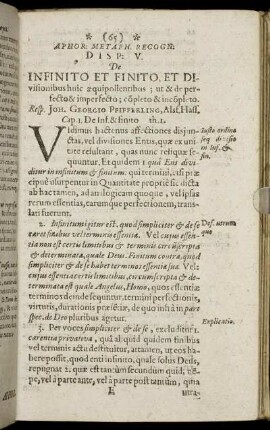 * (65) *
APHOR. METAPH. RECOGN:
DISP: V.
De
INFINITO ET FINITO, ET DI-
visionibus huic æquipollentibus; ut & de per-
fecto & imperfecto; cõpleto & incõpleto.
Resp. JOH. GEORGIO PFIFFERLING, Als. Hass.
Cap. 1. De Inf. & finito th. 1.
Vidimus hactenus affectiones disjun-
ctas, vel divisiones Entis, quæ ex uni-
tate resultant, quas nunc reliquæ se-
quuntur. Et quidem 1 quâ Ens dividi-
ditur in infinitum & finitum. qui termini, etsi præ-
cipuè usurpentur in Quantitate propriè sic dicta
ab hac tamen, ad analogicam quoque, vel ipsas
rerum essentias, earumque perfectionem, trans-
lati fuerunt.
2. Infinitum igitur est, quod simpliciter & de se
caret finibus vel terminis essentia. Vel cujus essen-
tia non est certis limitibus & terminis circũscripta
& determinata, quale Deus. Finitum contrà, quod
simpliciter & de se habet terminos essentiæ suæ. Vel
cujus essentia certis limitibus, circumscripta & de-
terminata est quale Angelus, Homo, quos essentiæ
terminos dein sequuntur, termini perfectionis,
virtutis, durationis præsentiæ, de quo infrà in part.
spec. de Deo pluribus agetur.
3. Per voces simpliciter & de se, excluditur 1.
carentia privativa, quâ aliquid quidem finibus
vel terminis actu destituitur, attamen, ut eos ha-
bere possit, quod enti infinito, quale solus Deus,
repugnat 2. quæ est tantùm secundum quid, nē-
pe, vel à parte ante, vel à parte post tantùm, quia
E
utra-
Justo ordine
seq. divisio
in Inf. &
fin.
Def. utrius-
que
Explicatio.